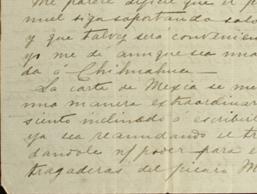 Me parece dificil que el p
muel siga soportando solo
y que talvez será convenien
yo me dé aunque sea una
da á Chihuahua.—
La carta de Mexia se me
una manera extraordinar
siento inclinado á escribir
ya sea reanudando el tr
dandole n/ poder para e
tragaderas del pícaro M